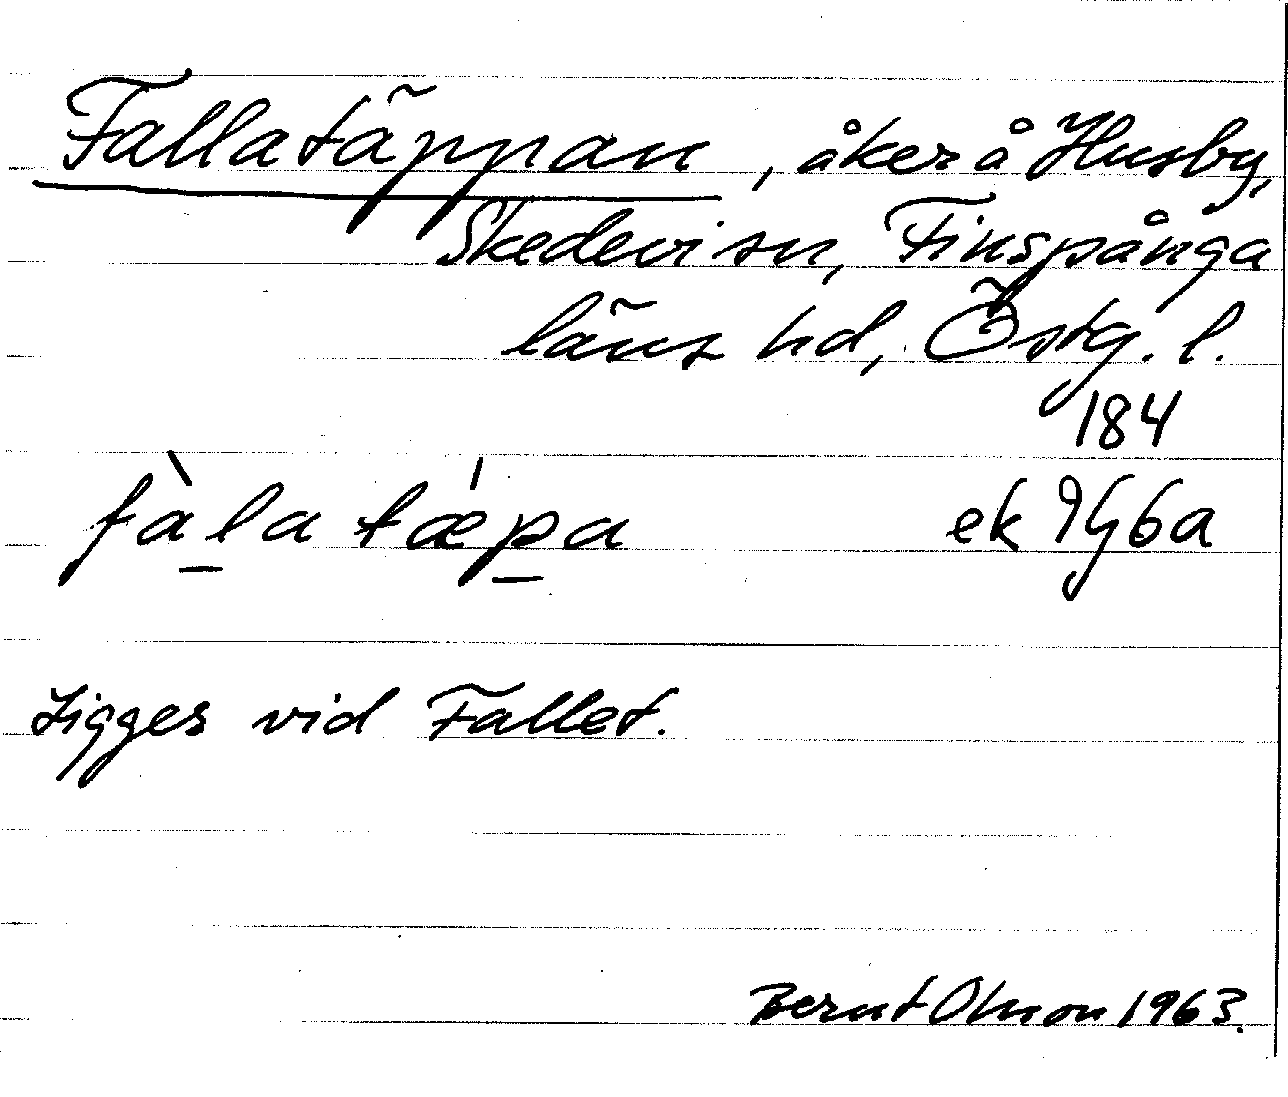 Fallatäppan, åker å Husby,
Skedevi sn, Finspånga
läns hd, Östg. l.
184
fàla tǽpa ek 9G6a
Ligges vid Fallet.
Bernt Olsson 1963.